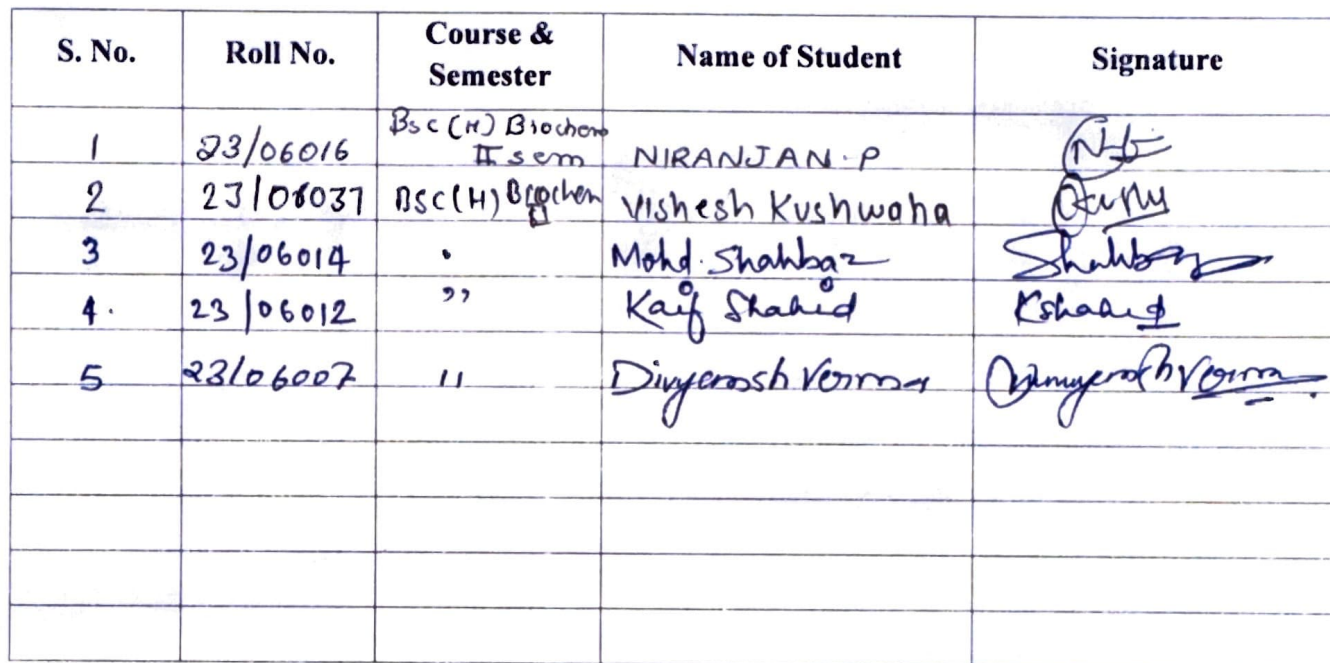 S. No. Roll No. Course & Semester Name of Student Signature
1 23/06016 Bsc (H) Biochem II sem NIRANJAN.P
2 23/06037 BSC(H) Biochem II Vishesh Kushwaha
3 23/06014 " Mohd. Shahbaz Shahbaz
4. 23/06012 " Kaif Shahid Kshahid
5 23/06007 " Divyansh Verma Divyansh Verma